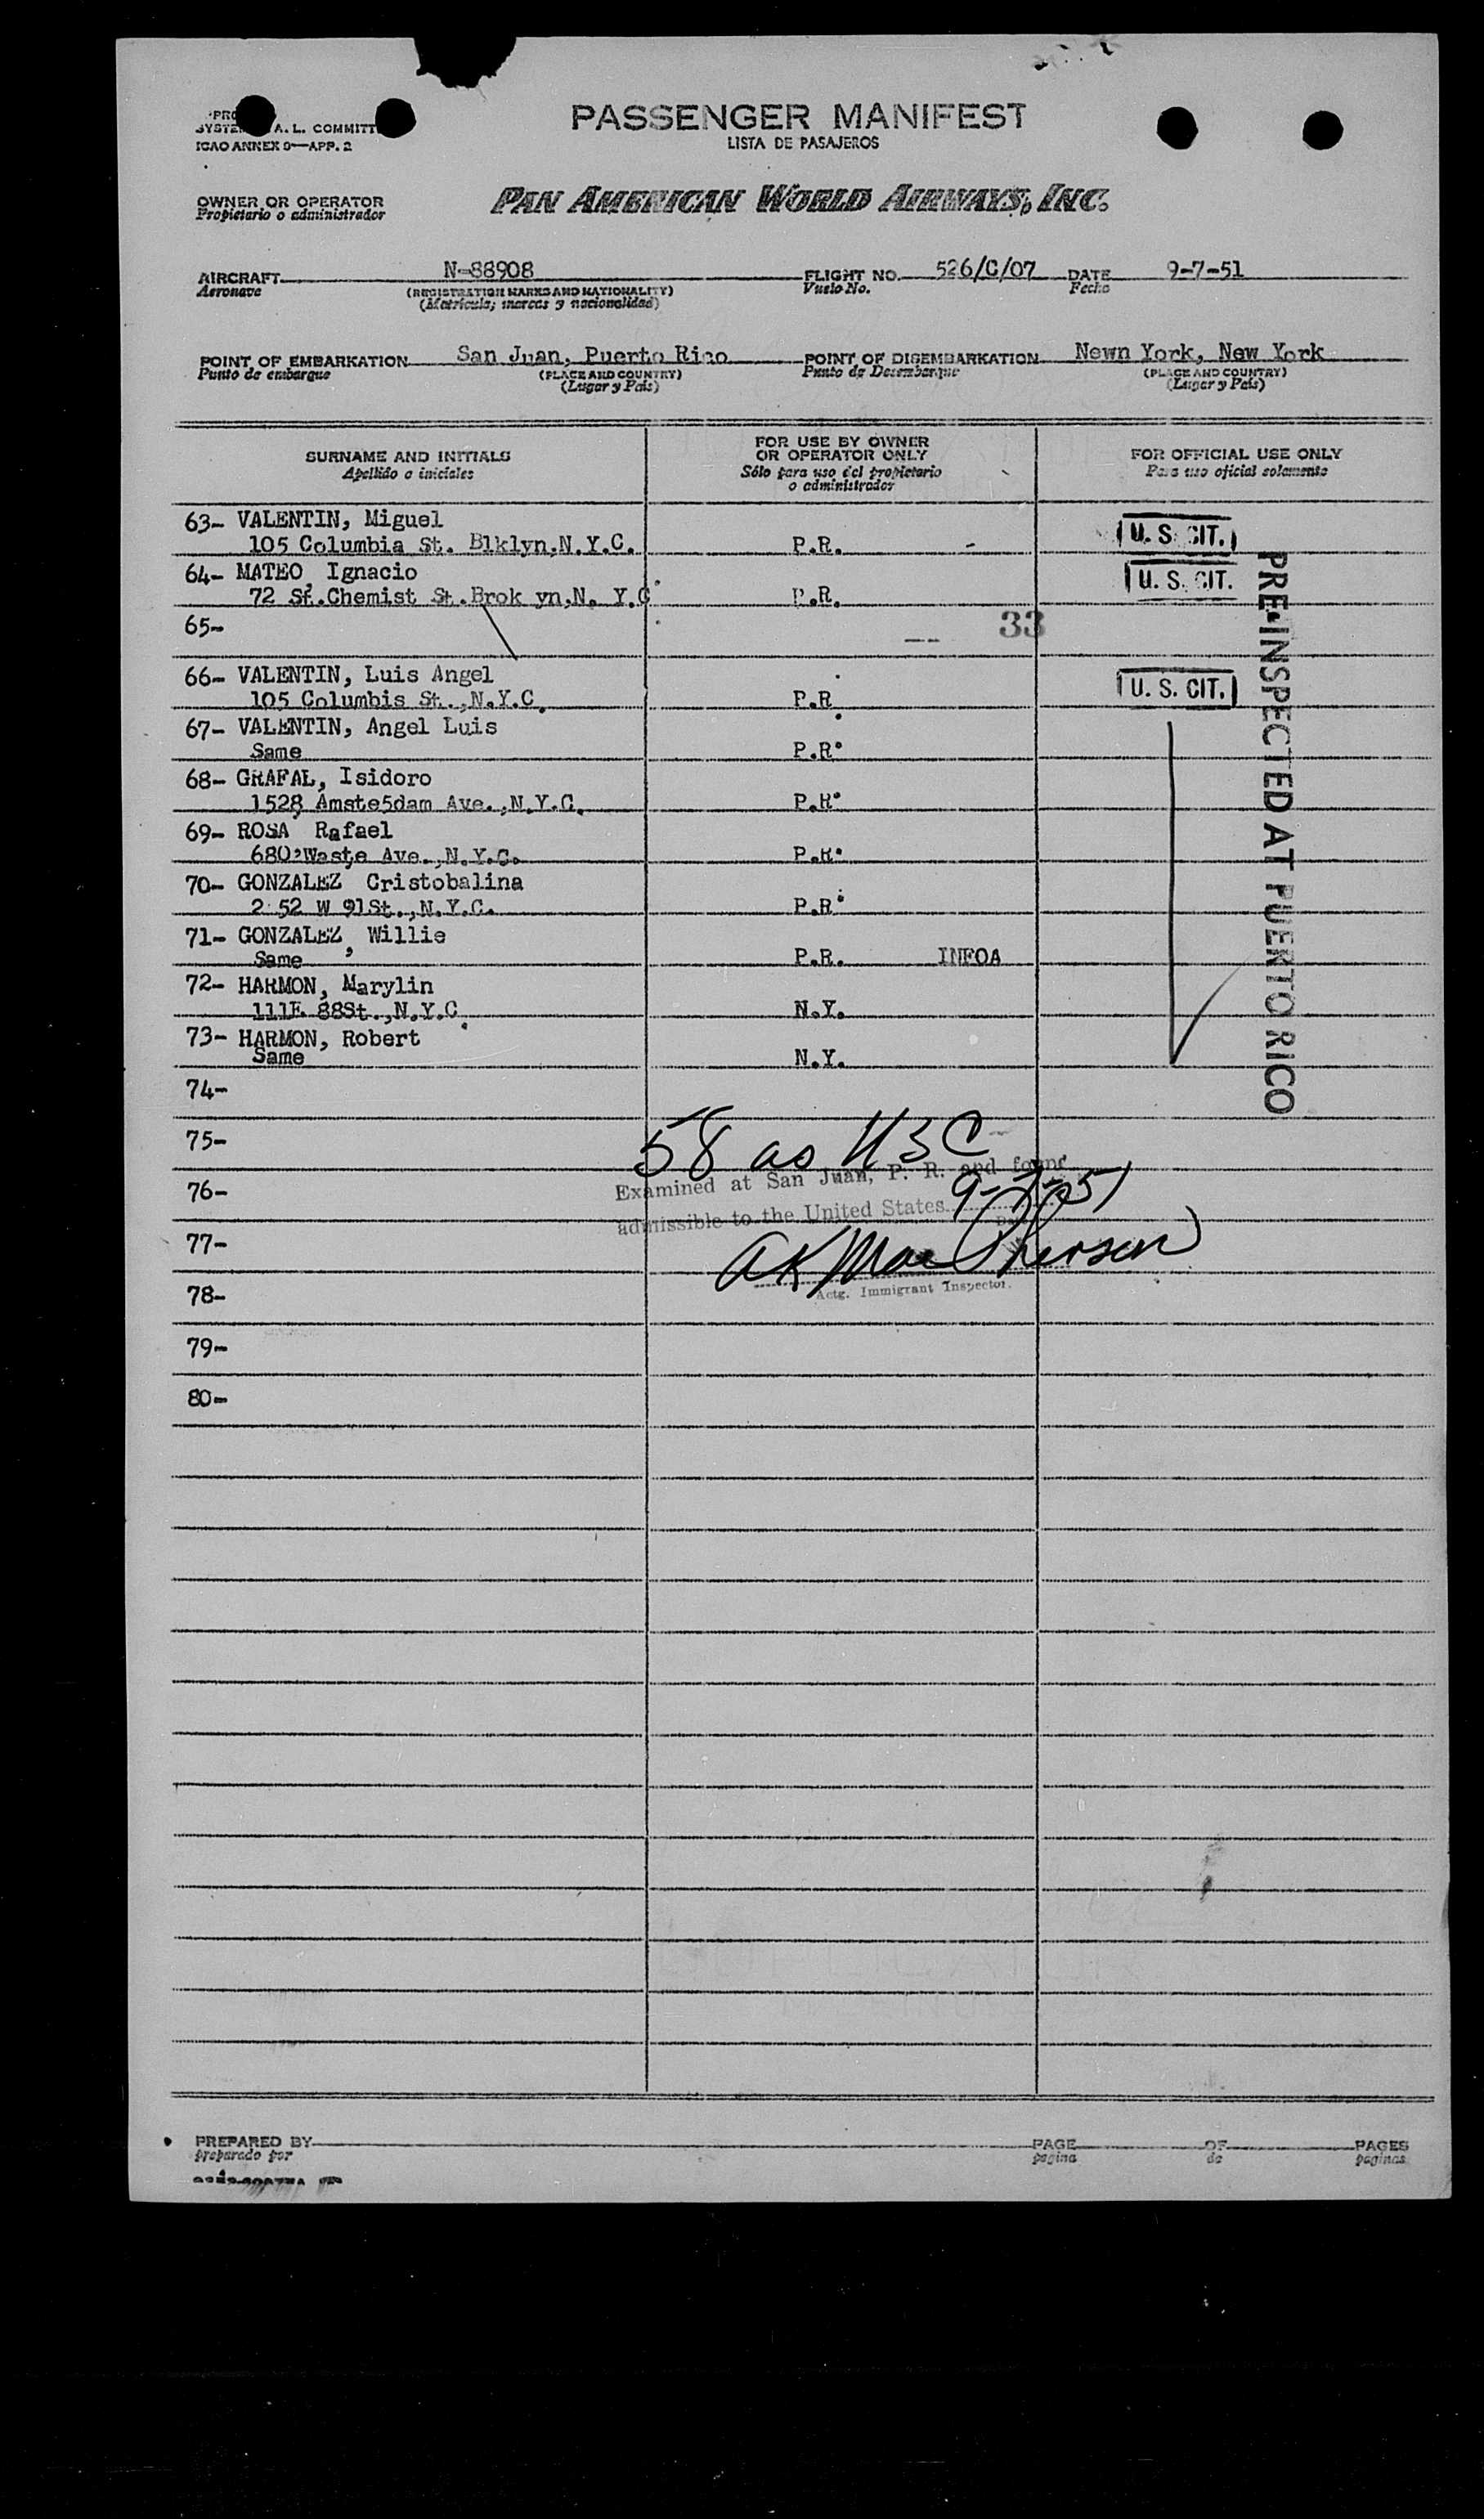 PASSENGER MANIFEST
LISTA DE PASAJEROS
A. L. COMMITT
ICAO ANNEX 9—APP. 2
OWNER OR OPERATOR
Propietario o administrador
PAN AMERICAN WORLD AIRWAYS, INC.
AIRCRAFT N-88908 FLIGHT NO. 526/C/07 DATE 9-7-51
Aeronave (REGISTRATION MARKS AND NATIONALITY) Vuelo No. Fecha
(Matricula; marcas y nacionalidad)
POINT OF EMBARKATION San Juan, Puerto Rico POINT OF DISEMBARKATION Newn York, New York
Punto de embarque (PLACE AND COUNTRY) Punto de Desembarque (PLACE AND COUNTRY)
(Lugar y País) (Lugar y País)
SURNAME AND INITIALS
Apellido o iniciales
FOR USE BY OWNER
OR OPERATOR ONLY
Sólo para uso del propietario
o administrador
FOR OFFICIAL USE ONLY
Para uso oficial solamente
63- VALENTIN, Miguel
105 Columbia St. Blklyn,N.Y.C. P.R. - U. S. CIT.
64- MATEO, Ignacio U. S. CIT.
72 Sf.Chemist St.Brok yn,N. Y.C P.R.
65- -- 33
66- VALENTIN, Luis Angel
105 Columbis St.,N.Y.C. P.R. U. S. CIT.
67- VALENTIN, Angel Luis
Same P.R.
68- GRAFAL, Isidoro
1528 Amste5dam Ave.,N.Y.C. P.R.
69- ROSA, Rafael
680 Waste Ave.,N.Y.C. P.R.
70- GONZALEZ Cristobalina
2 52 W 91St.,N.Y.C. P.R.
71- GONZALEZ, Willie
Same P.R. INFOA
72- HARMON, Marylin
111E 88St.,N.Y.C. N.Y.
73- HARMON, Robert
Same N.Y.
PRE-INSPECTED AT PUERTO RICO
74-
75- 58 as USC
76- Examined at San Juan, P. R. and found
admissible to the United States 9-7-51
77- AK MacPherson
78- Actg. Immigrant Inspector.
79-
80-
PREPARED BY PAGE OF PAGES
preparado por pagina de paginas